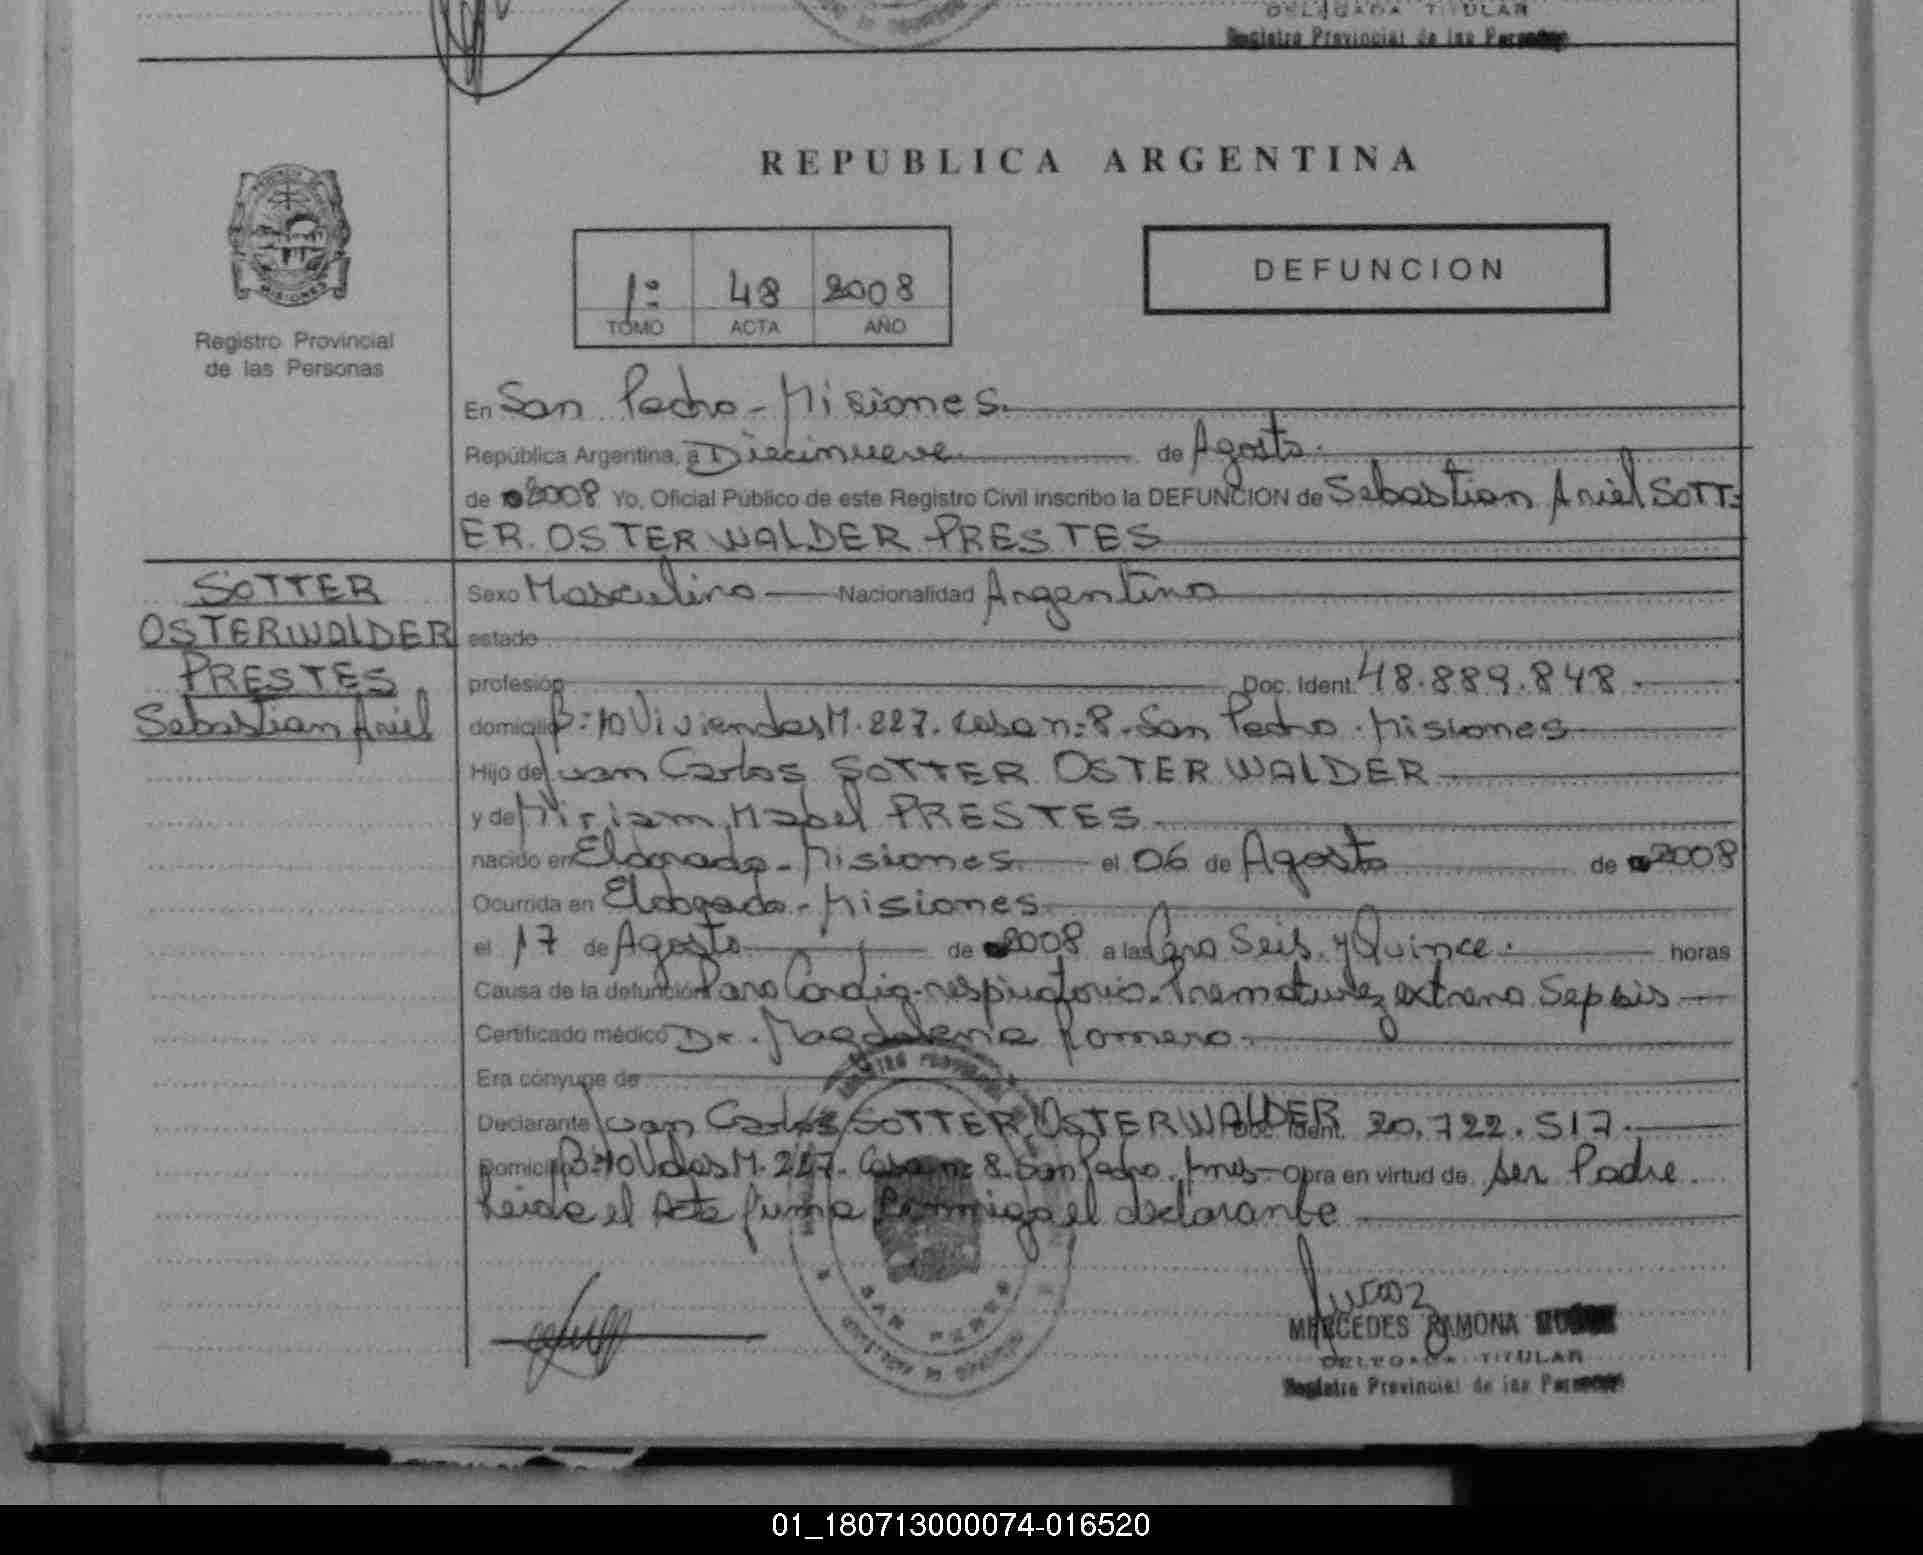 DELEGADA TITULAR
Registro Provincial de las Personas
REPUBLICA ARGENTINA
MISIONES
Registro Provincial
de las Personas
1º 48 2008
TOMO ACTA AÑO
DEFUNCION
En San Pedro - Misiones.
República Argentina, a Diecinueve de Agosto.
de 2008 Yo, Oficial Público de este Registro Civil inscribo la DEFUNCION de Sebastian Ariel SOTT=
ER. OSTERWALDER PRESTES
SOTTER
OSTERWALDER
PRESTES
Sebastian Ariel
Sexo Masculino Nacionalidad Argentina
estado
profesión Doc. Ident. 48.889.848.
domicilio B: 10 Viviendas M. 227. casa n: 8. San Pedro. Misiones
Hijo de Juan Carlos SOTTER OSTERWALDER
y de Miriam Mabel PRESTES
nacido en Eldorado - Misiones el 06 de Agosto de 2008
Ocurrida en Eldorado - Misiones
el 17 de Agosto de 2008 a las Cero Seis y Quince. horas
Causa de la defunción Paro Cardio-respiratorio. Prematurez extrema Sepsis
Certificado médico Dr. Magdalena Romero
Era cónyuge de
Declarante Juan Carlos SOTTER OSTERWALDER Doc. Ident. 20.722.517.
Domicilio B: 10 Vdas M. 227. Casa n: 8. San Pedro. Mnes- Obra en virtud de ser Padre.
Leida el Acta firma conmigo el declarante
SAN PEDRO
MERCEDES RAMONA
DELEGADA TITULAR
Registro Provincial de las Personas
01_180713000074-016520